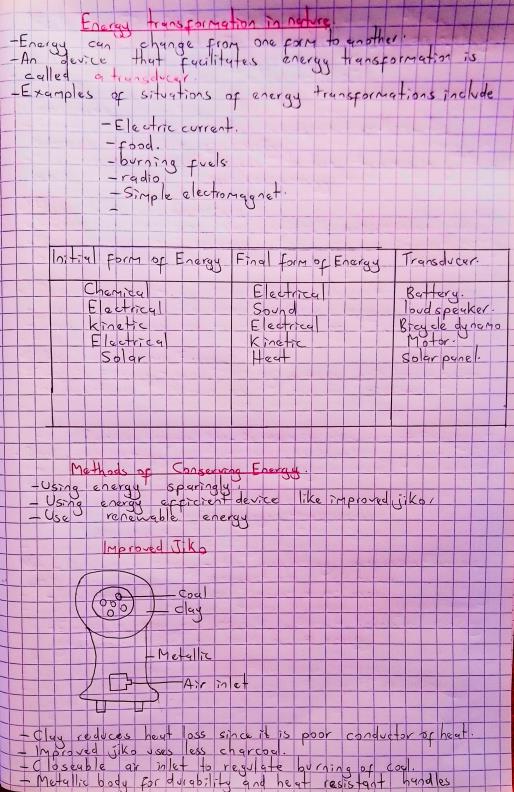 Energy transformation in nature.
-Energy can change from one form to another.
-An device that facilitates energy transformation is
called a transducer
-Examples of situations of energy transformations include
-Electric current.
-food.
-burning fuels
-radio
-Simple electromagnet.
-
Initial form of Energy Final form of Energy Transducer.
Chemical Electrical Battery.
Electrical Sound loudspeaker.
kinetic Electrical Bicycle dynamo
Electrical Kinetic Motor.
Solar Heat Solar panel.
Methods of Conserving Energy.
-Using energy sparingly.
- Using energy efficient device like improved jiko.
- Use renewable energy
Improved Jiko
coal
clay
Metallic
Air inlet
- Clay reduces heat loss since it is poor conductor of heat.
- Improved jiko uses less charcoal.
- Closeable air inlet to regulate burning of coal.
- Metallic body for durability and heat resistant handles